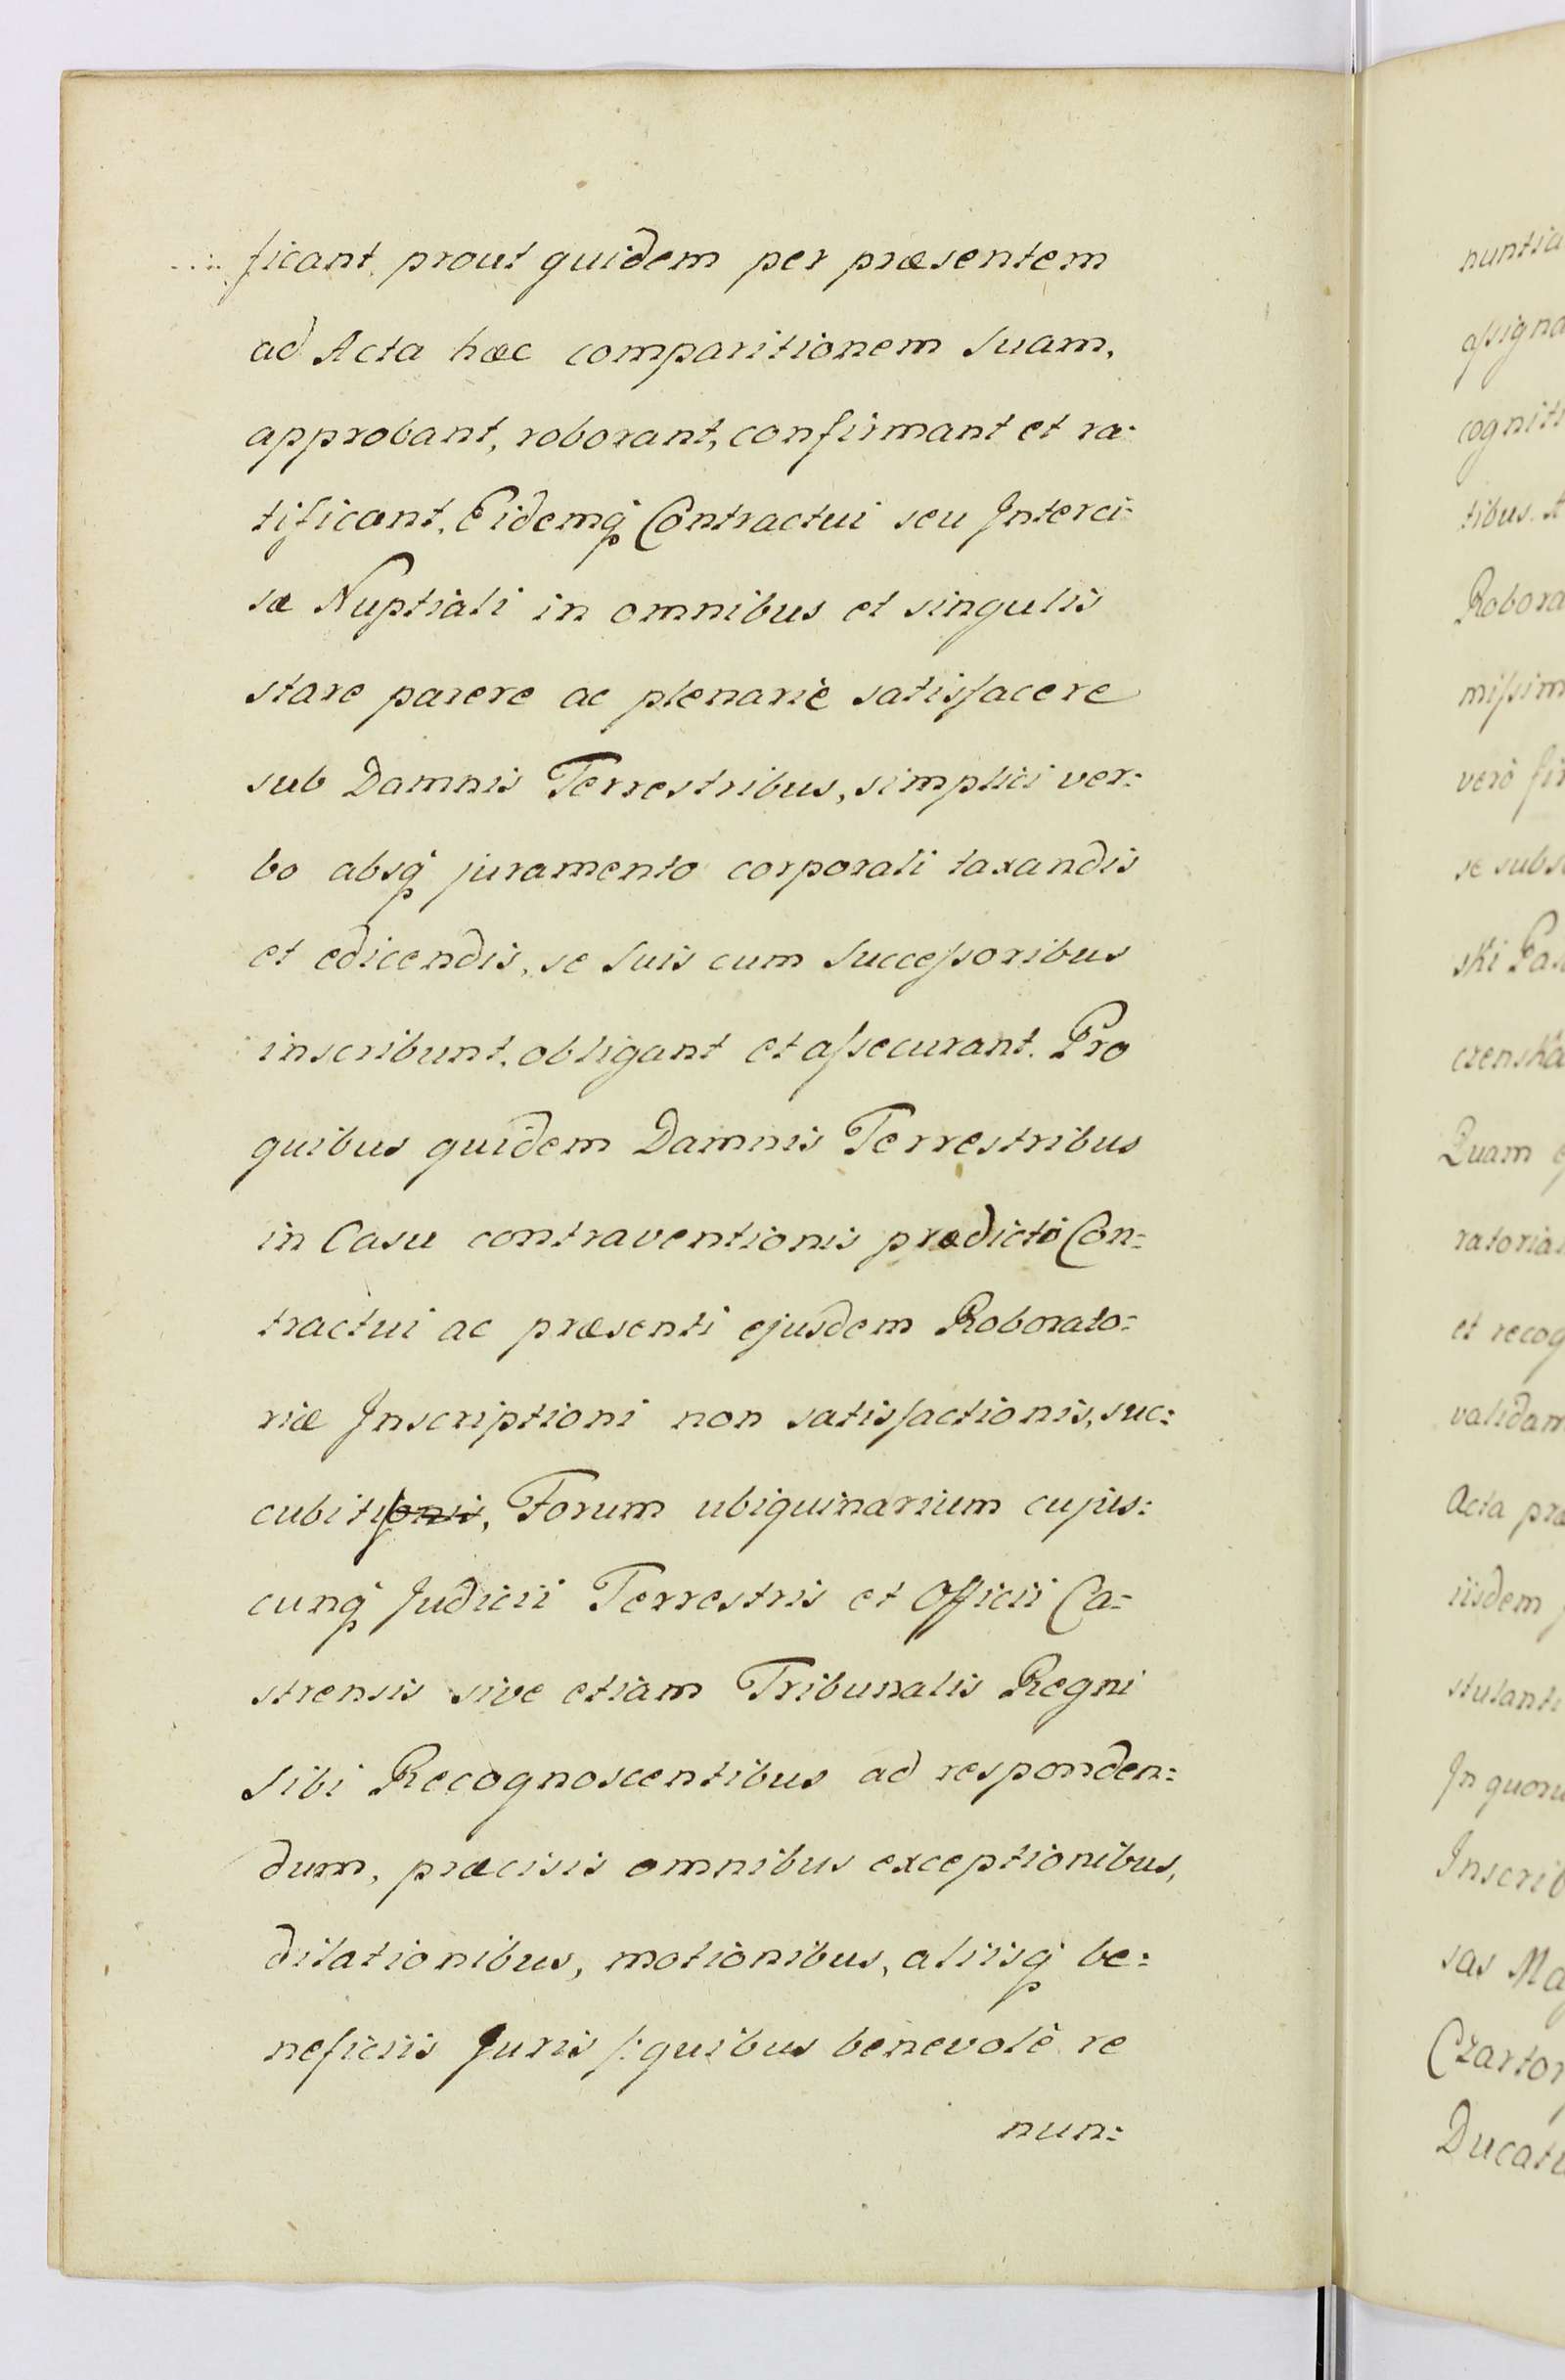 ficant, prout quidem per præsentem
ad Acta hæc comparitionem Suam,
approbant, roborant, confirmant et ra-
tificant. Eidemq́ Contractui seu Interci-
sæ Nuptiali in omnibus et singulis
stare parere ac plenariè satisfacere
sub Damnis Terrestribus, simplici ver=
bo absq́ juramento corporali taxandis
et edicendis, se Suis cum Succeſsoribus
inscribunt, obligant et aſsecurant. Pro
quibus quidem Damnis Terrestribus
in Casu contraventionis prædicto Con=
tractui ac præsenti ejusdem Roborato=
riæ Inscriptioni non satisfactionis, suc=
cubitionis, Forum ubiquinarium cujus=
cunq́ Judicii Terrestris et Officii Ca=
strensis sive etiam Tribunalis Regni
Sibi Recognoscentibus ad responden=
dum, præcisis omnibus exceptionibus,
dilationibus, motionibus, aliisq́ be=
neficiis Juris /: quibus benevolè re
nun=
nuntia
aſsigna
cogniti
tibus. A
Robora
miſsim
verò fir
se subs
ski Pa
czenska
Quam
ratoria
et recog
validam
Acta præ
iisdem
stulanti
In quoru
Inscrib
sas Ma
Czartor
Ducatu